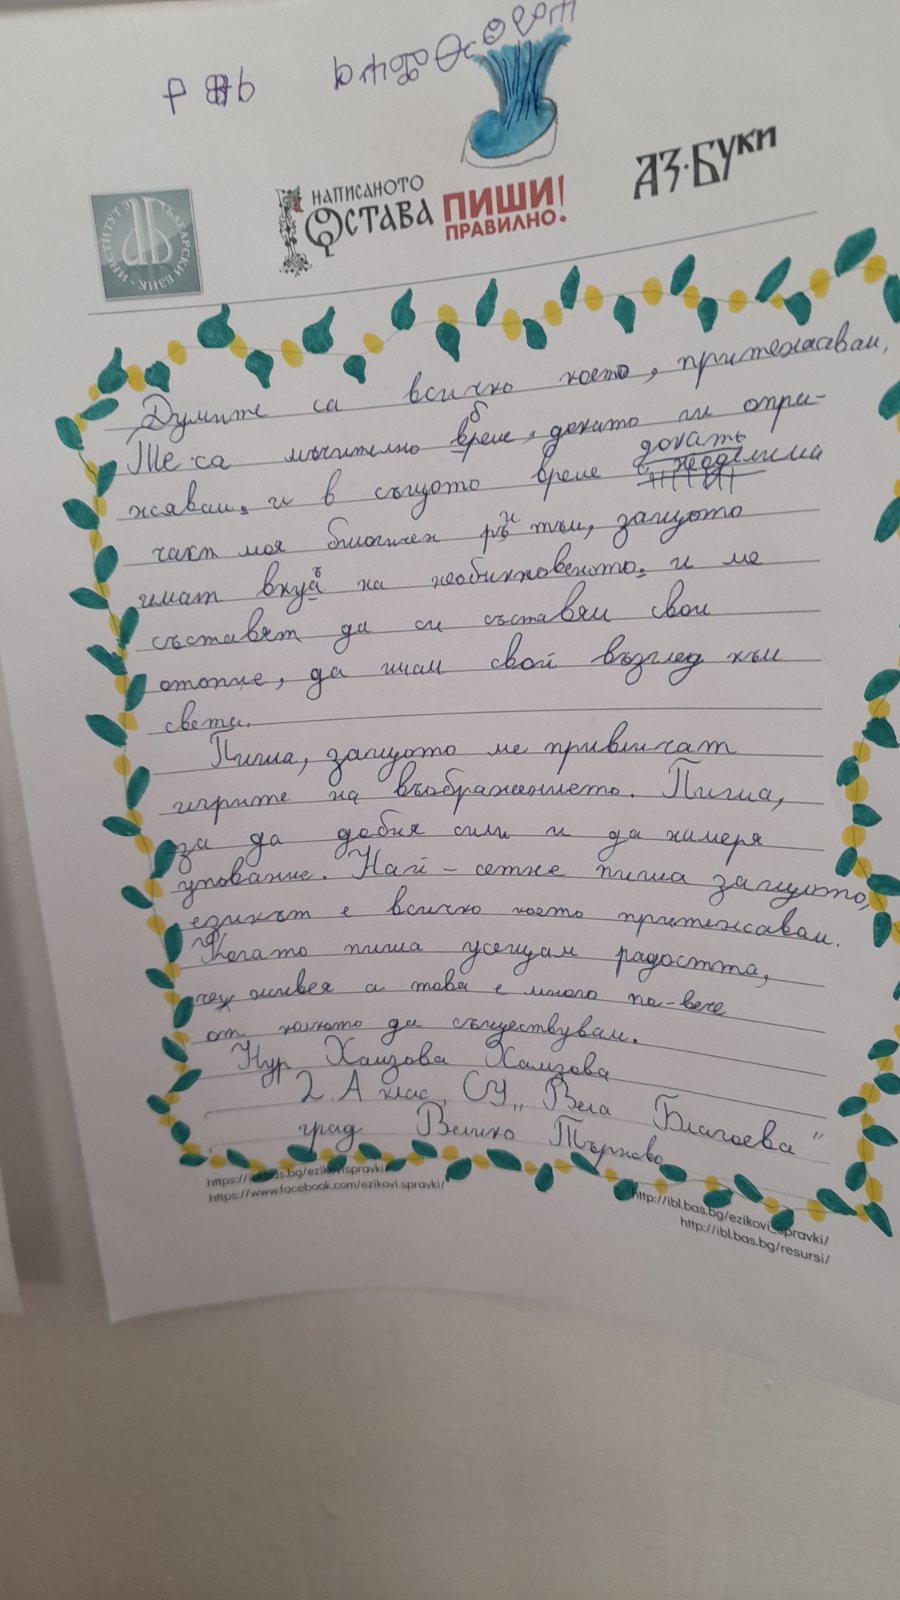 ИНСТИТУТ ЗА БЪЛГАРСКИ ЕЗИК
НАПИСАНОТО
ОСТАВА
ПИШИ!
ПРАВИЛНО.
АЗ·БУКИ
Думите са всичко което, притежавам,
Те са мъчително бреме, докато ги опри-
жявам, и в същото време докать
чакт моя биогичен ритъм, защото
имат вкуъ на необикновеното, и ме
съставят да си съставям свои
отопие, да имам свой възглед към
света.
Пиша, защото ме привличат
игрите на въображението. Пиша,
за да добия сили и да намеря
упование. Най-сетне пиша защото,
езикът е всичко което притежавам.
Когато пиша усещам радостта,
че живея а това е много по-вече
от колкото да съществувам.
Нур Хамзова Хамзова
2. А клас, СУ „Вела Благоева"
град Велико Търново
https://ibl.bas.bg/ezikovispravki/
https://www.facebook.com/ezikovi.spravki/
http://ibl.bas.bg/ezikovi_spravki/
http://ibl.bas.bg/resursi/